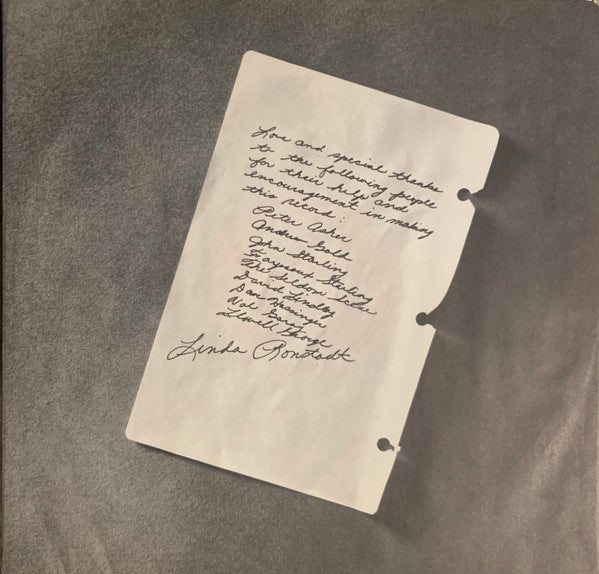 Love and special thanks
to the following people
for their help and
encouragement in making
this record:
Peter Asher
Andrew Gold
John Starling
& Fayssoux Starling
The Seldom Scene
David Lindley
Dan Dessinger
Val Garay
Llowell George
Linda Ronstadt